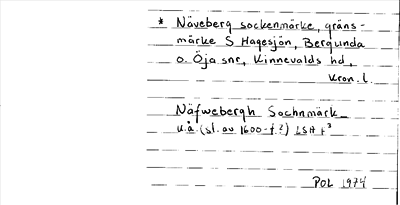 * Näveberg sockenmärke, gräns-
märke S Hagesjön, Bergunda
o. Öja snr, Kinnevalds hd,
Kron. l.
Näfwebergh Sochnmärk
u.å (sl. av 1600-t.?) LSA
POL 1974